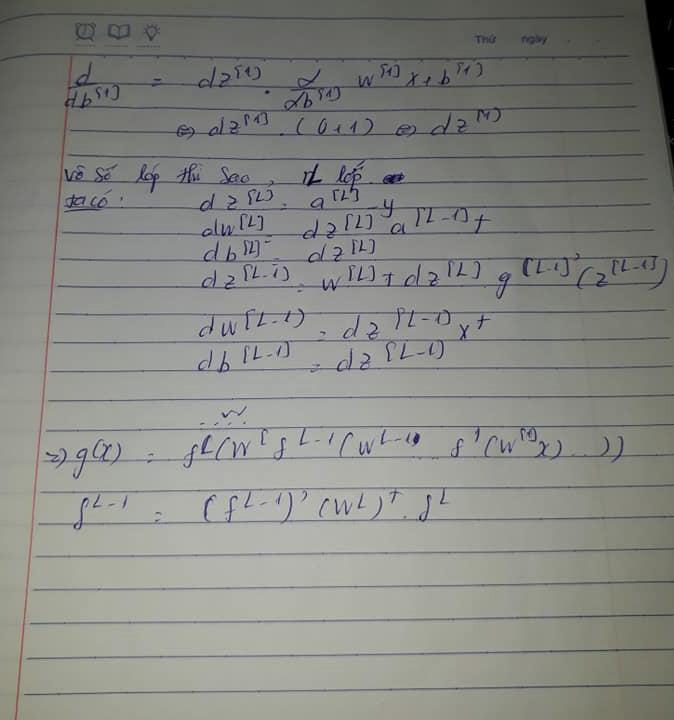 Thứ ngày
d/db^[1] = dz^[1] . d/db^[1] w^[1] x + b^[1]
⇔ dz^[1] . (0+1) ⇔ dz^[1]
Vô số lớp thì sao, L lớp
ta có: dz^[L] = a^[L] - y
dw^[L] = dz^[L] a^[L-1]T
db^[L] = dz^[L]
dz^[L-1] = w^[L]T dz^[L] . g^[L-1]'(z^[L-1])
dw^[L-1] = dz^[L-1] x^T
db^[L-1] = dz^[L-1]
⇒ g(x) = f^L(W^L f^L-1(W^L-1 ... f^1(W^[1]x)...))
f^L-1 = (f^L-1)'(W^L)^T . f^L